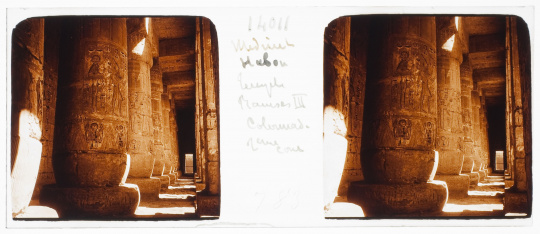 14011
Medinet
Habou
Temple
Ramses III
Colonnade
d'une
cour